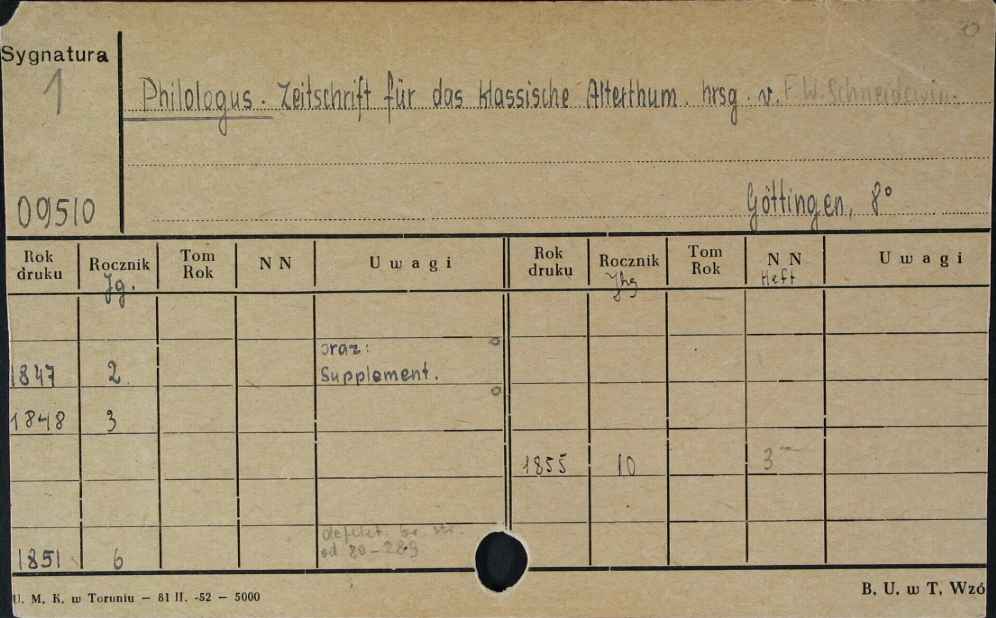 Sygnatura
1
09510
Philologus. Zeitschrift für das klassische Alterthum. hrsg. v. F. W. Schneidewin.
Göttingen, 8°
Rok druku Rocznik Tom Rok N N Uwagi Rok druku Rocznik Tom Rok N N Uwagi
Jg. Jhg Heft
oraz:
1847 2 Supplement.
1848 3
1855 10 3
defekt. br. str.
1851 6 od 80-289
U. M. K. w Toruniu — 81 II. -52 — 5000
B. U. w T. Wzó